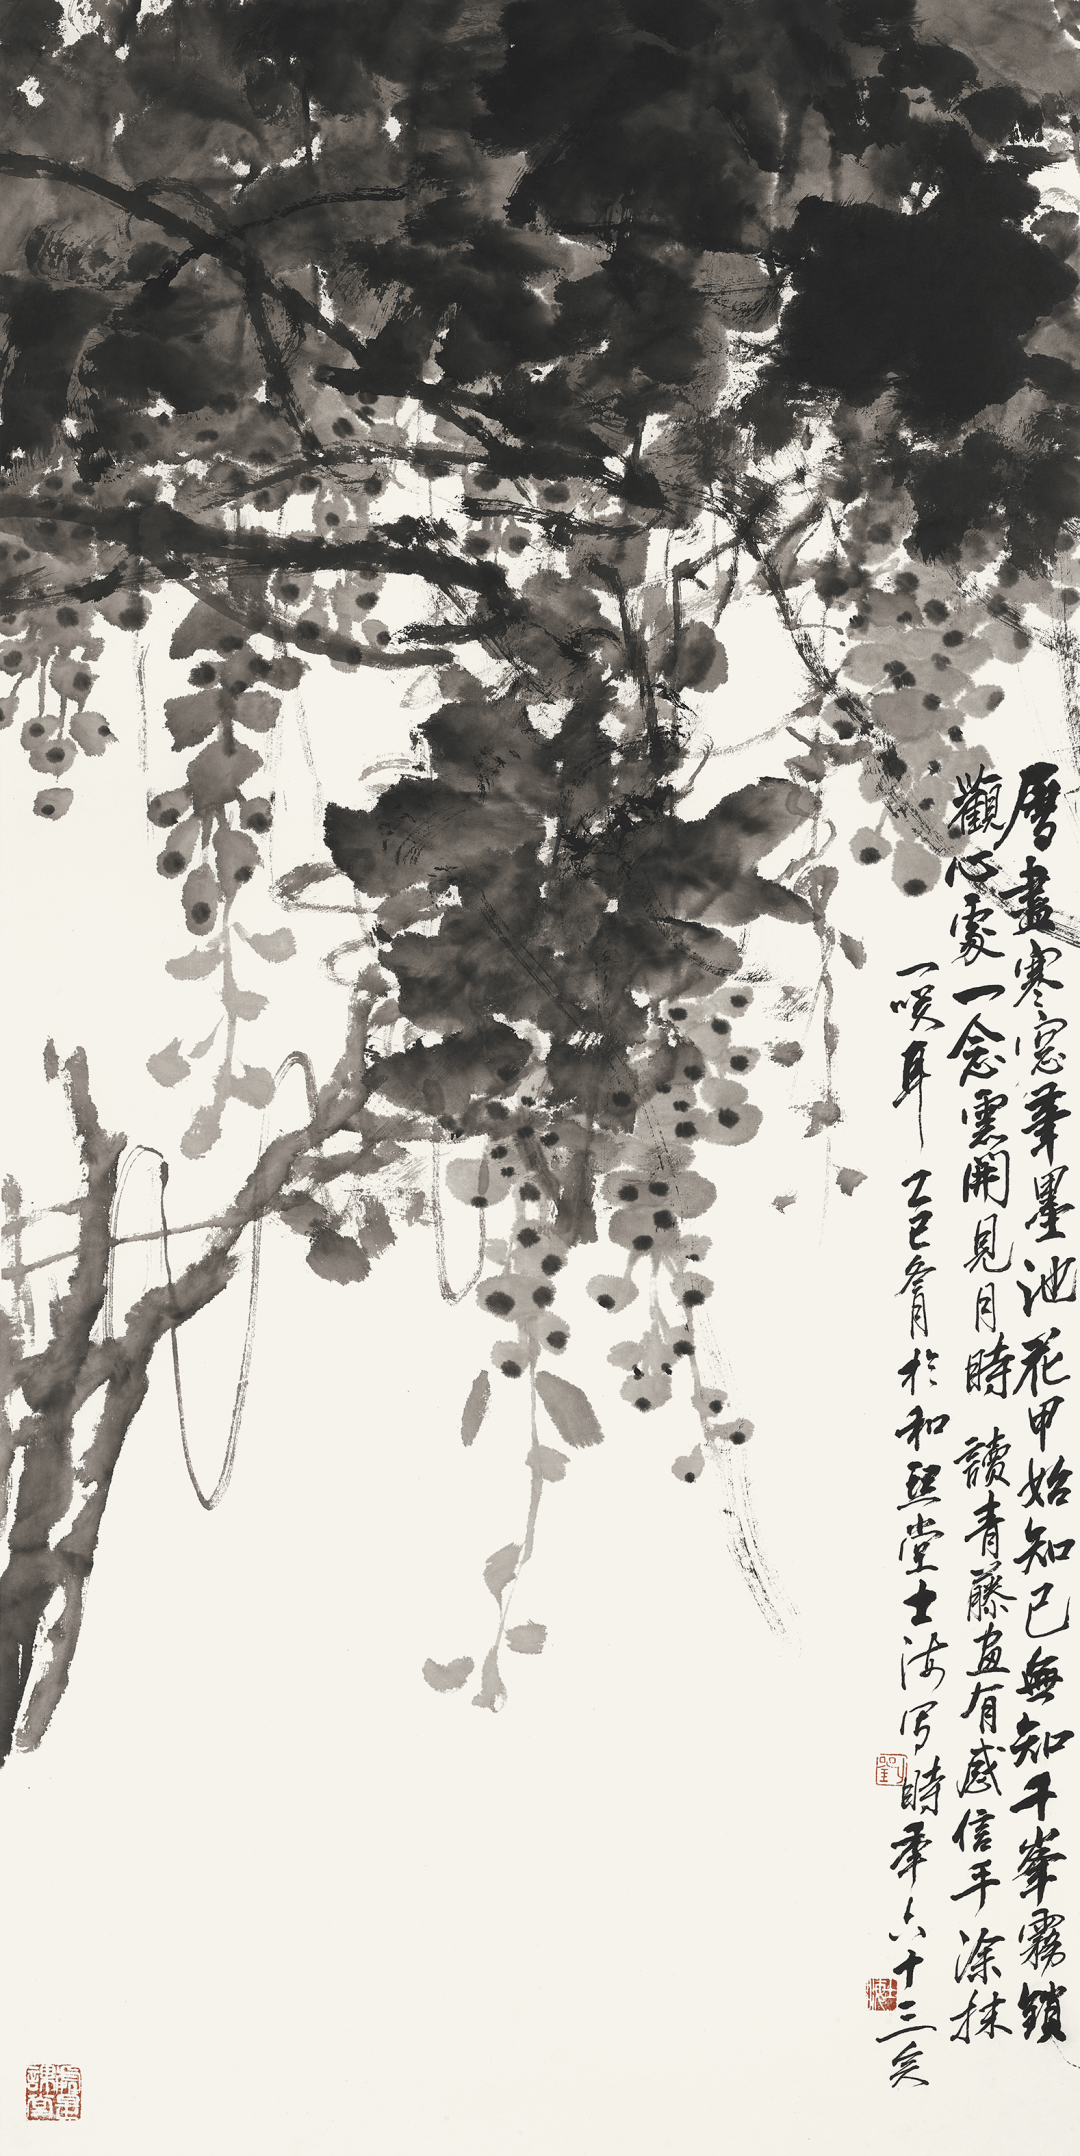 磨盡寒窓筆墨池花甲始知已無知千峯霧鎖
觀心處一念雲開見月時 讀青藤畫有感信手涂抹
一咲耳 乙巳叁月於和熙堂士海写時年六十三矣